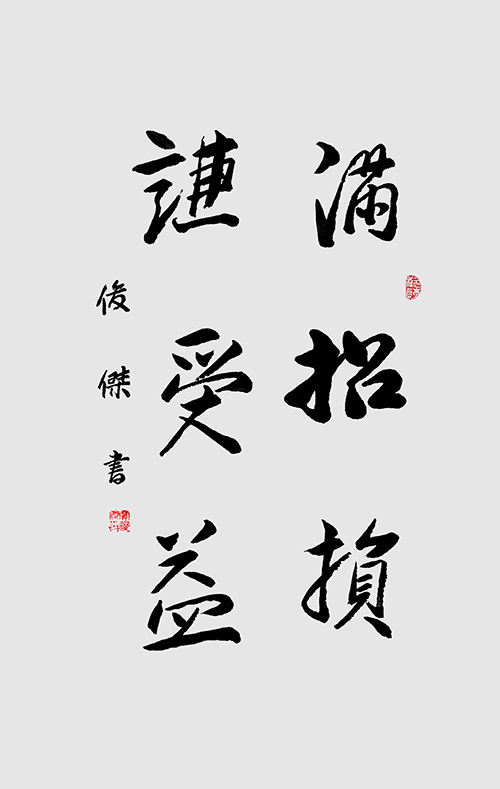 滿招損
謙受益
俊傑書